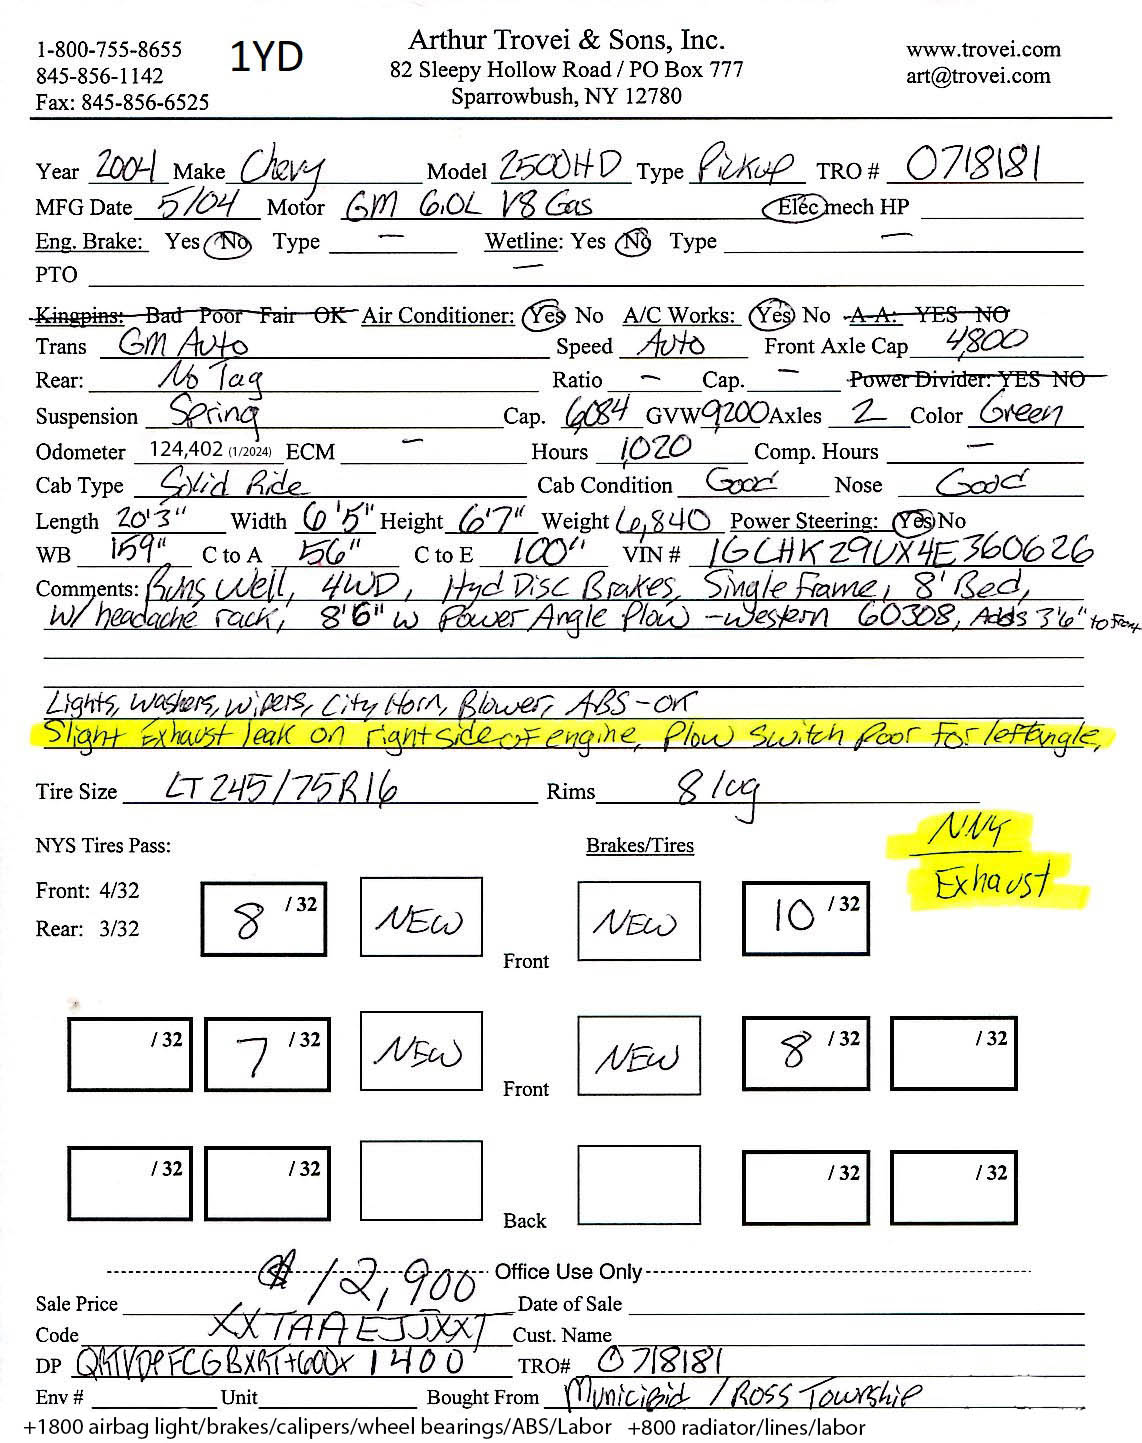 1-800-755-8655 1YD Arthur Trovei & Sons, Inc. www.trovei.com
845-856-1142 82 Sleepy Hollow Road / PO Box 777 art@trovei.com
Fax: 845-856-6525 Sparrowbush, NY 12780
Year 2004 Make Chevy Model 2500HD Type Pickup TRO # 0718181
MFG Date 5/04 Motor GM 6.0L V8 Gas Elec mech HP
Eng. Brake: Yes No Type – Wetline: Yes No Type –
PTO –
Kingpins: Bad Poor Fair OK Air Conditioner: Yes No A/C Works: Yes No A-A: YES NO
Trans GM Auto Speed Auto Front Axle Cap 4,800
Rear: No Tag Ratio – Cap. – Power Divider: YES NO
Suspension Spring Cap. 6084 GVW 9200 Axles 2 Color Green
Odometer 124,402 (1/2024) ECM – Hours 1,020 Comp. Hours –
Cab Type Solid Ride Cab Condition Good Nose Good
Length 20'3" Width 6'5" Height 6'7" Weight 6,840 Power Steering: Yes No
WB 159" C to A 56" C to E 100" VIN # 1GCHK29UX4E360626
Comments: Runs Well, 4WD, Hyd Disc Brakes, Single Frame, 8' Bed,
w/ headache rack, 8'6" w Power Angle Plow - Western 60308, Adds 3'6" to
Lights, Washers, Wipers, City Horn, Blower, ABS - OK
Slight Exhaust leak on right side of engine, Plow Switch Poor For left angle,
Tire Size LT 245/75R16 Rims 8 lug
NYS Tires Pass: Brakes/Tires NNY
Exhaust
Front: 4/32 8 /32 NEW NEW 10 /32
Rear: 3/32
Front
/32 7 /32 NEW NEW 8 /32 /32
Front
/32 /32 /32 /32
Back
Office Use Only
Sale Price $12,900 Date of Sale
Code XXTAAEJJXXT Cust. Name
DP 1400 TRO# 0718181
Env # Unit Bought From Municibid / Ross Township
+1800 airbag light/brakes/calipers/wheel bearings/ABS/Labor +800 radiator/lines/labor